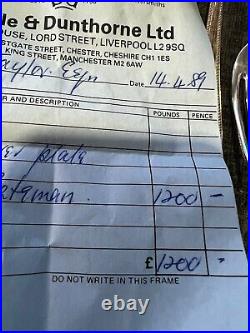 le & Dunthorne Ltd
OUSE, LORD STREET, LIVERPOOL L2 9SQ
STGATE STREET, CHESTER, CHESHIRE CH1 1ES
KING STREET, MANCHESTER M2 6AW
Date 14.4.89
POUNDS PENCE
plate
1200 -
£ 1200 -
DO NOT WRITE IN THIS FRAME